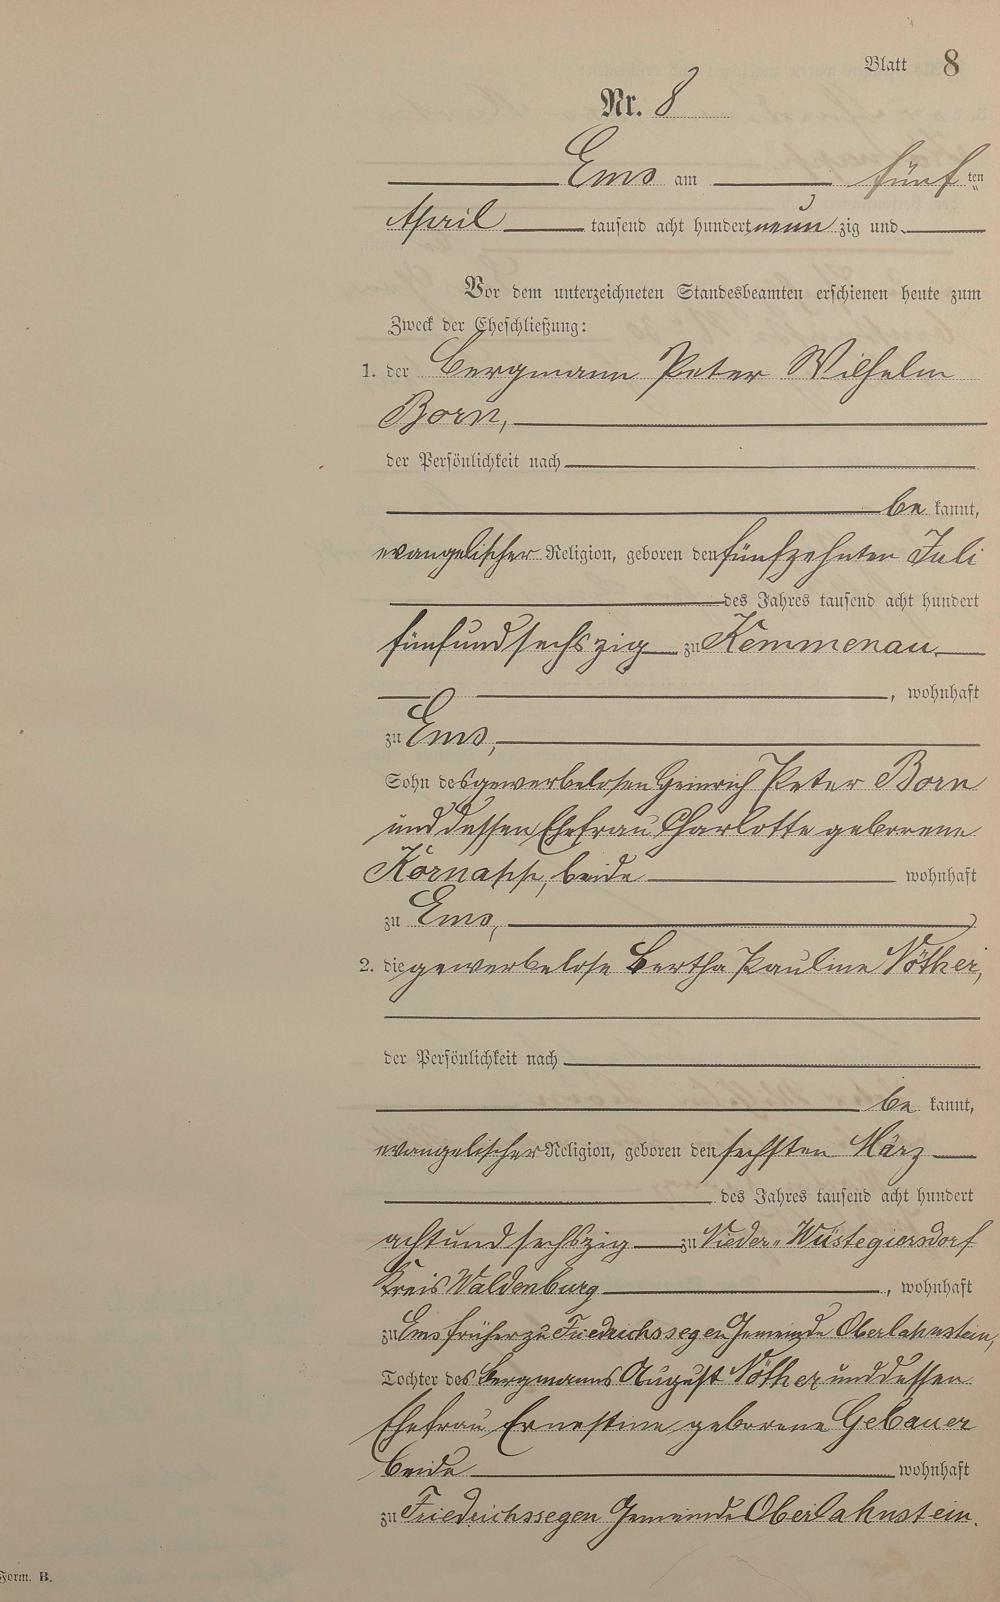 Blatt 8
Nr. 8
Ems am fünf ten
April tausend acht hundert neun zig und
Vor dem unterzeichneten Standesbeamten erschienen heute zum
Zweck der Eheschließung:
1. der Bergmann Peter Wilhelm
Born,
der Persönlichkeit nach
be kannt,
evangelischer Religion, geboren den fünfzehnten Juli
des Jahres tausend acht hundert
fünfundsechszig zu Kemmenau
, wohnhaft
zu Ems,
Sohn des gewerbelosen Heinrich Peter Born
und dessen Ehefrau Charlotte geborene
beide wohnhaft
zu Ems,
2. die gewerbelose Bertha Pauline Nöther,
der Persönlichkeit nach
be kannt,
evangelischer Religion, geboren den sechsten März
des Jahres tausend acht hundert
achtundsechszig zu Nieder-Wüstegiersdorf
Kreis Waldenburg , wohnhaft
zu Ems früher zu Friedrichssegen Gemeinde Oberlahnstein,
Tochter des Bergmanns August Nöther und dessen
Ehefrau Ernestine geborene Gebauer
beide wohnhaft
zu Friedrichssegen Gemeinde Oberlahnstein.
Form. B.